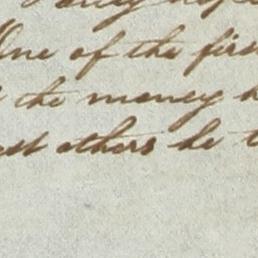 One of the firs
the money h
others he t